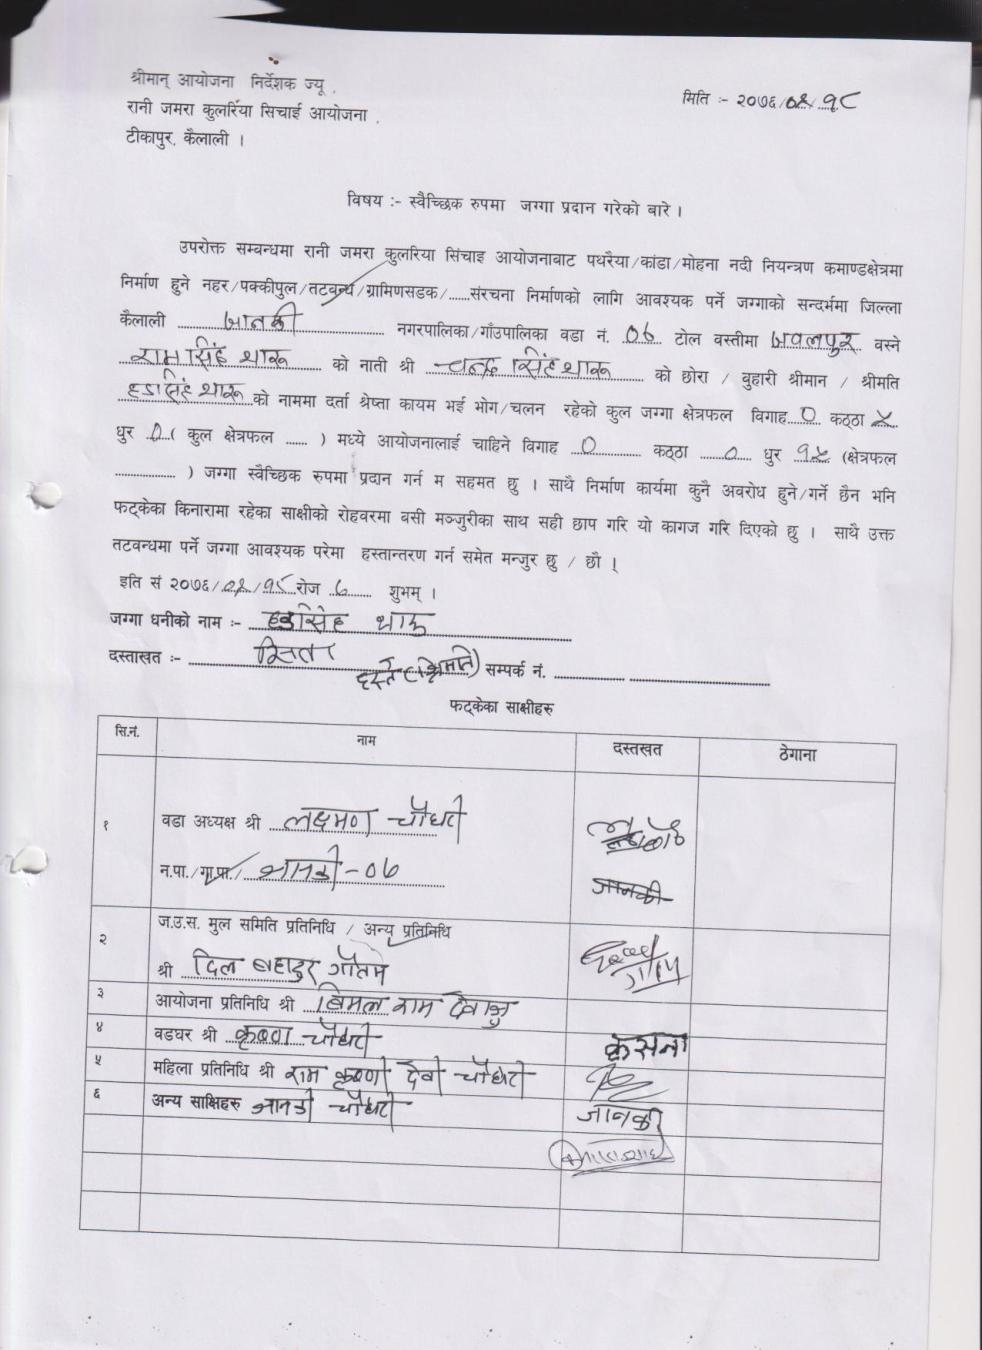 श्रीमान् आयोजना निर्देशक ज्यू ,
रानी जमरा कुलरिया सिचाई आयोजना ,
टीकापुर, कैलाली ।
मिति :- २०७६/०५/१८
विषय :- स्वैच्छिक रुपमा जग्गा प्रदान गरेको बारे ।
उपरोक्त सम्बन्धमा रानी जमरा कुलरिया सिंचाइ आयोजनाबाट पथरैया/कांडा/मोहना नदी नियन्त्रण कमाण्डक्षेत्रमा
निर्माण हुने नहर/पक्कीपुल/तटवन्ध/ग्रामिणसडक/......संरचना निर्माणको लागि आवश्यक पर्ने जग्गाको सन्दर्भमा जिल्ला
कैलाली जानकी नगरपालिका/गाँउपालिका वडा नं. ०७ टोल वस्तीमा जवलपुर वस्ने
राम सिंह थारू को नाती श्री चन्द्र सिंह थारू को छोरा / बुहारी श्रीमान / श्रीमति
थारू को नाममा दर्ता श्रेष्ता कायम भई भोग/चलन रहेको कुल जग्गा क्षेत्रफल विगाह ० कठ्ठा
धुर ० ( कुल क्षेत्रफल ...... ) मध्ये आयोजनालाई चाहिने विगाह ० कठ्ठा ० धुर १५ (क्षेत्रफल
............... ) जग्गा स्वैच्छिक रुपमा प्रदान गर्न म सहमत छु । साथै निर्माण कार्यमा कुनै अवरोध हुने/गर्ने छैन भनि
फट्केका किनारामा रहेका साक्षीको रोहवरमा बसी मञ्जुरीका साथ सही छाप गरि यो कागज गरि दिएको छु । साथै उक्त
तटवन्धमा पर्ने जग्गा आवश्यक परेमा हस्तान्तरण गर्न समेत मन्जुर छु / छौ ।
इति सं २०७६/०५/१८ रोज ७ शुभम् ।
जग्गा धनीको नाम :- थारू
दस्ताखत :- सिता
हस्ते (श्रिमति) सम्पर्क नं. ..................
फट्केका साक्षीहरु
सि.नं. नाम दस्तखत ठेगाना
१ वडा अध्यक्ष श्री लक्ष्मण चौधरी
न.पा./गा.पा./ जानकी-०७ जानकी
२ ज.उ.स. मुल समिति प्रतिनिधि / अन्य प्रतिनिधि
श्री दिल बहादुर गौतम
३ आयोजना प्रतिनिधि श्री बिमल राम
४ वडघर श्री कृष्णा चौधरी क्रसना
५ महिला प्रतिनिधि श्री राम कृष्णी देवी चौधरी
६ अन्य साक्षिहरु जानकी चौधरी जानकी